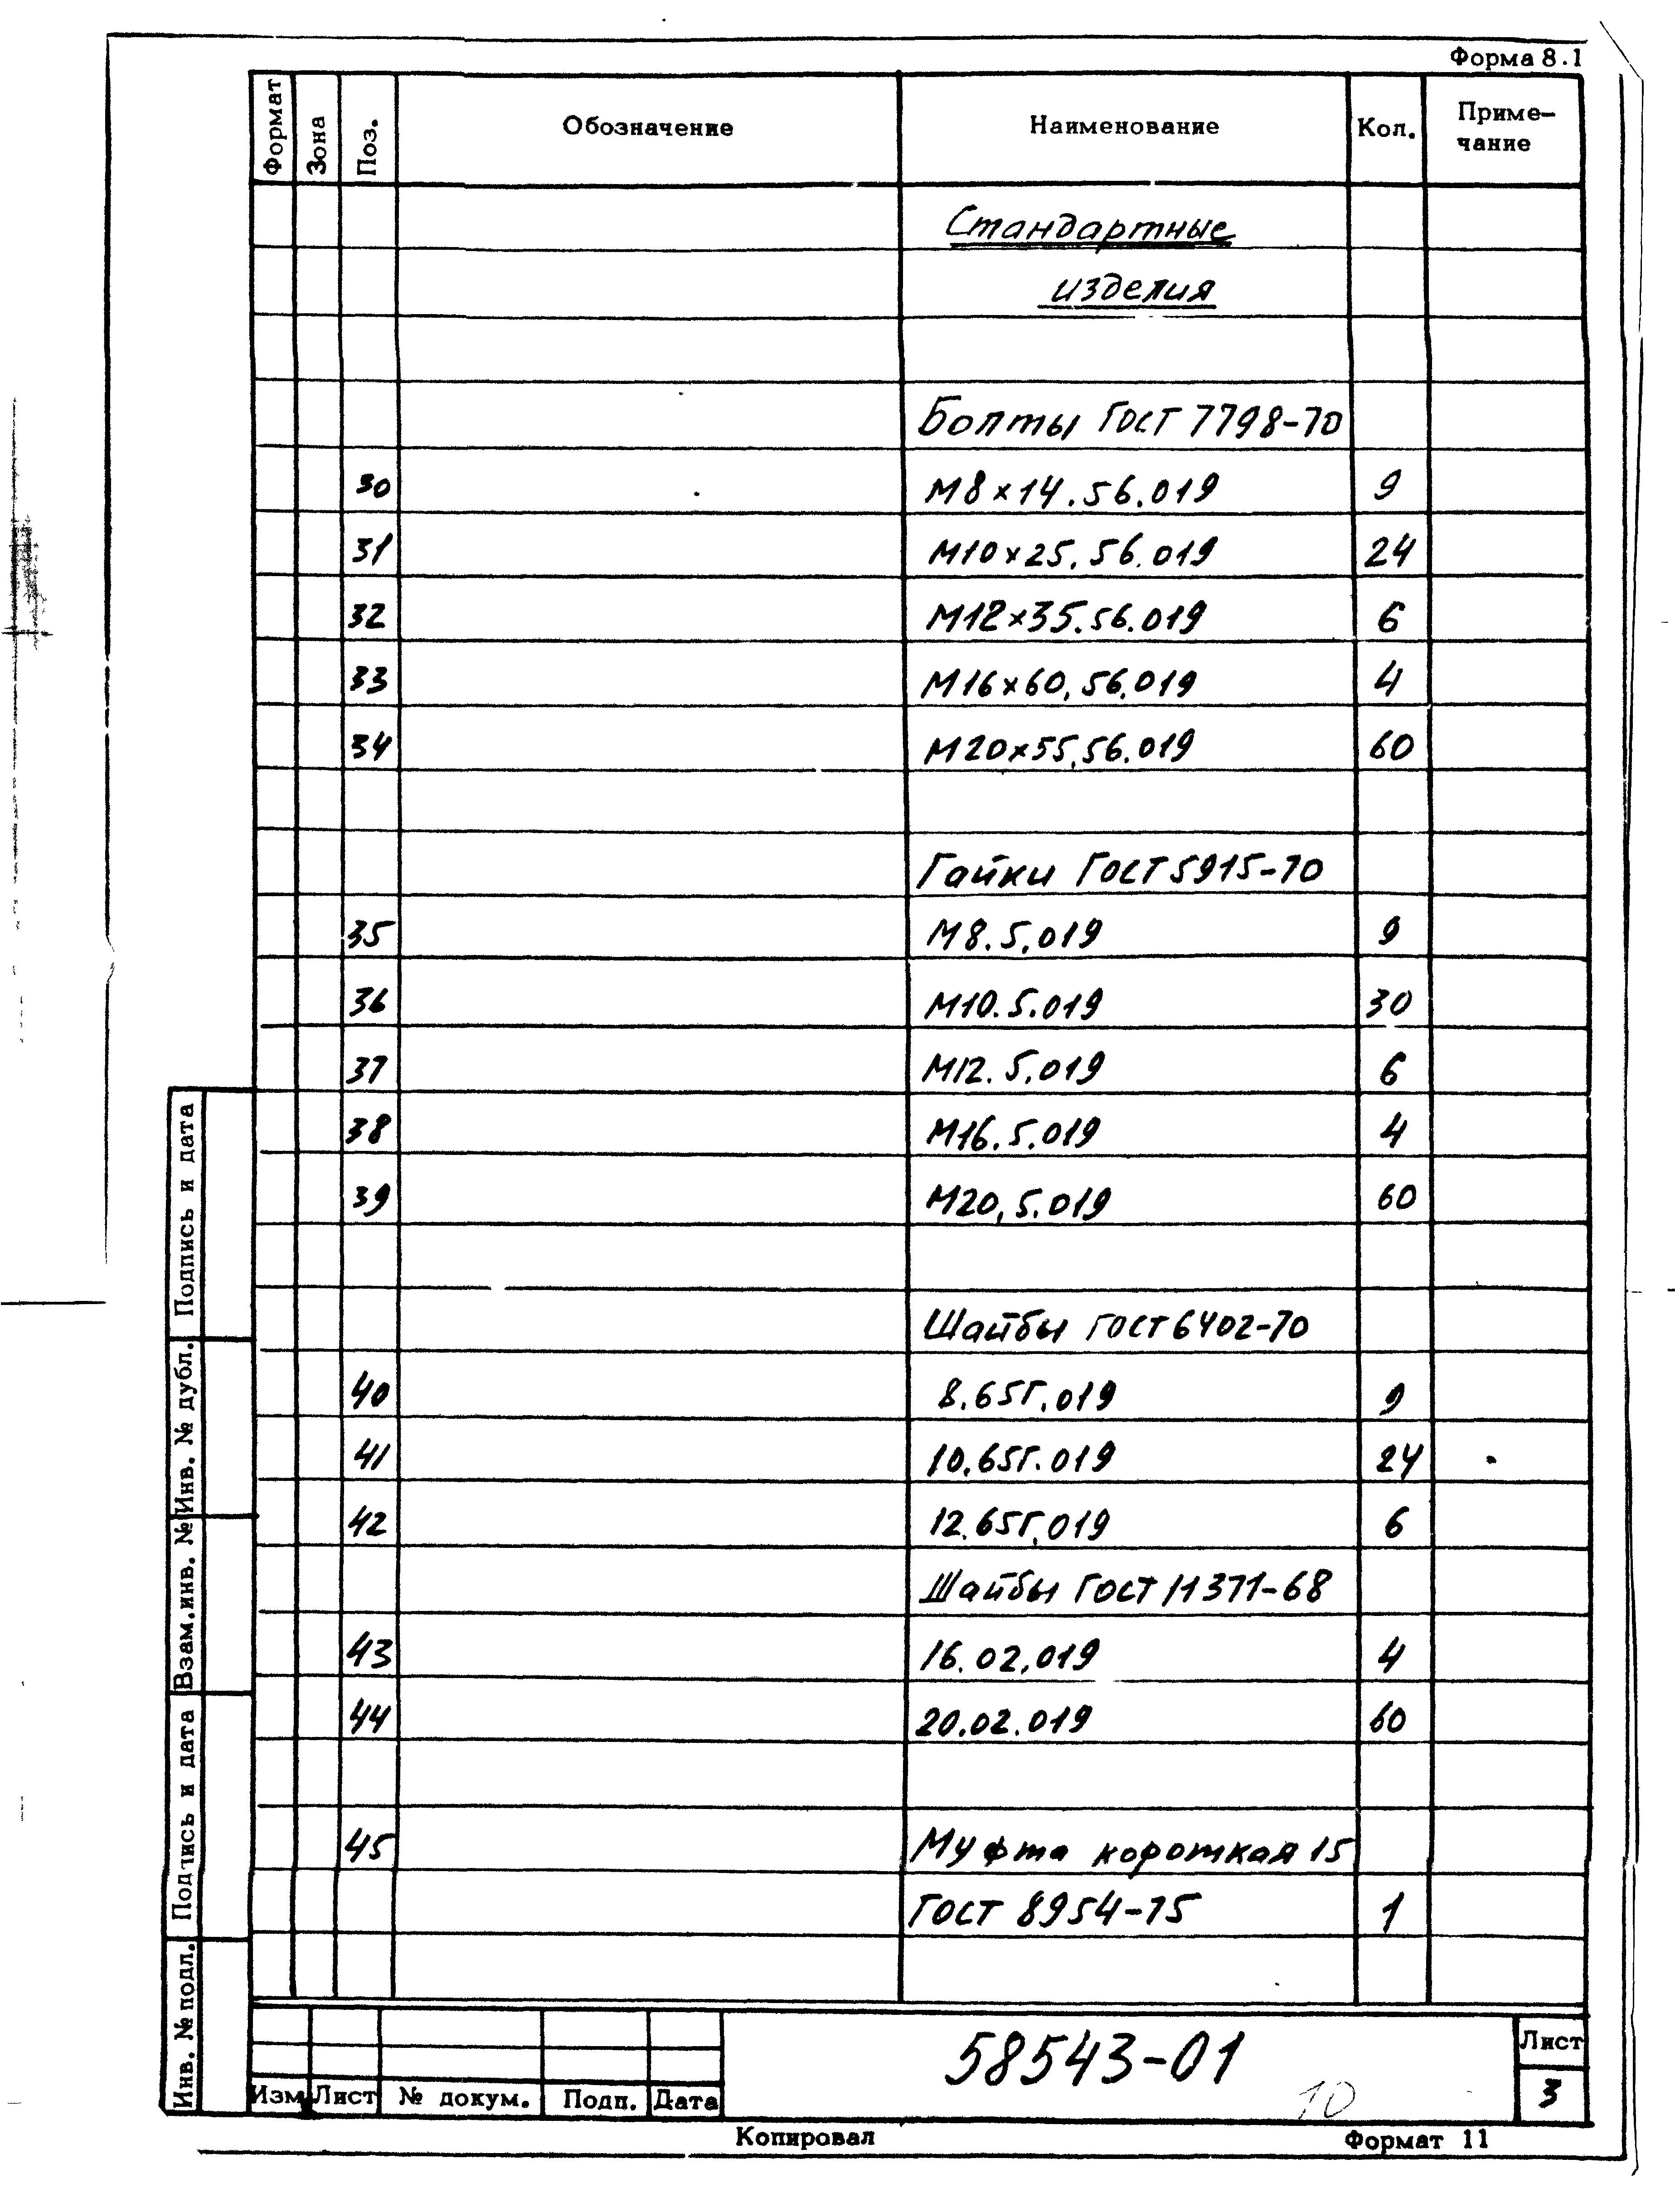 Форма 8.1
Формат Зона Поз. Обозначение Наименование Кол. Приме-
чание
Стандартные
изделия
Болты ГОСТ 7798-70
30 М8×14.56.019 9
31 М10×25.56.019 24
32 М12×35.56.019 6
33 М16×60.56.019 4
34 М20×55.56.019 60
Гайки ГОСТ 5915-70
35 М8.5.019 9
36 М10.5.019 30
37 М12.5.019 6
38 М16.5.019 4
39 М20.5.019 60
Шайбы ГОСТ 6402-70
40 8.65Г.019 9
41 10.65Г.019 24
42 12.65Г.019 6
Шайбы ГОСТ 11371-68
43 16.02.019 4
44 20.02.019 60
45 Муфта короткая 15
ГОСТ 8954-75 1
Подпись и дата
Инв. № дубл.
Взам.инв. №
Подпись и дата
Инв. № подл.
58543-01
Лист
3
10
Изм Лист № докум. Подп. Дата
Копировал Формат 11